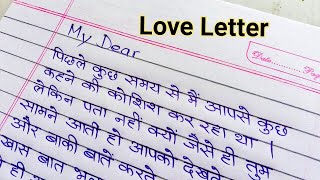 Love Letter
Date..... Pag
My Dear
पिछले कुछ समय से मैं आपसे कुछ
कहने की कोशिश कर रहा था।
लेकिन पता नहीं क्यों जैसे ही तुम
सामने आती हो आपको देखते
और बाकी बातें करते
खास बात भू